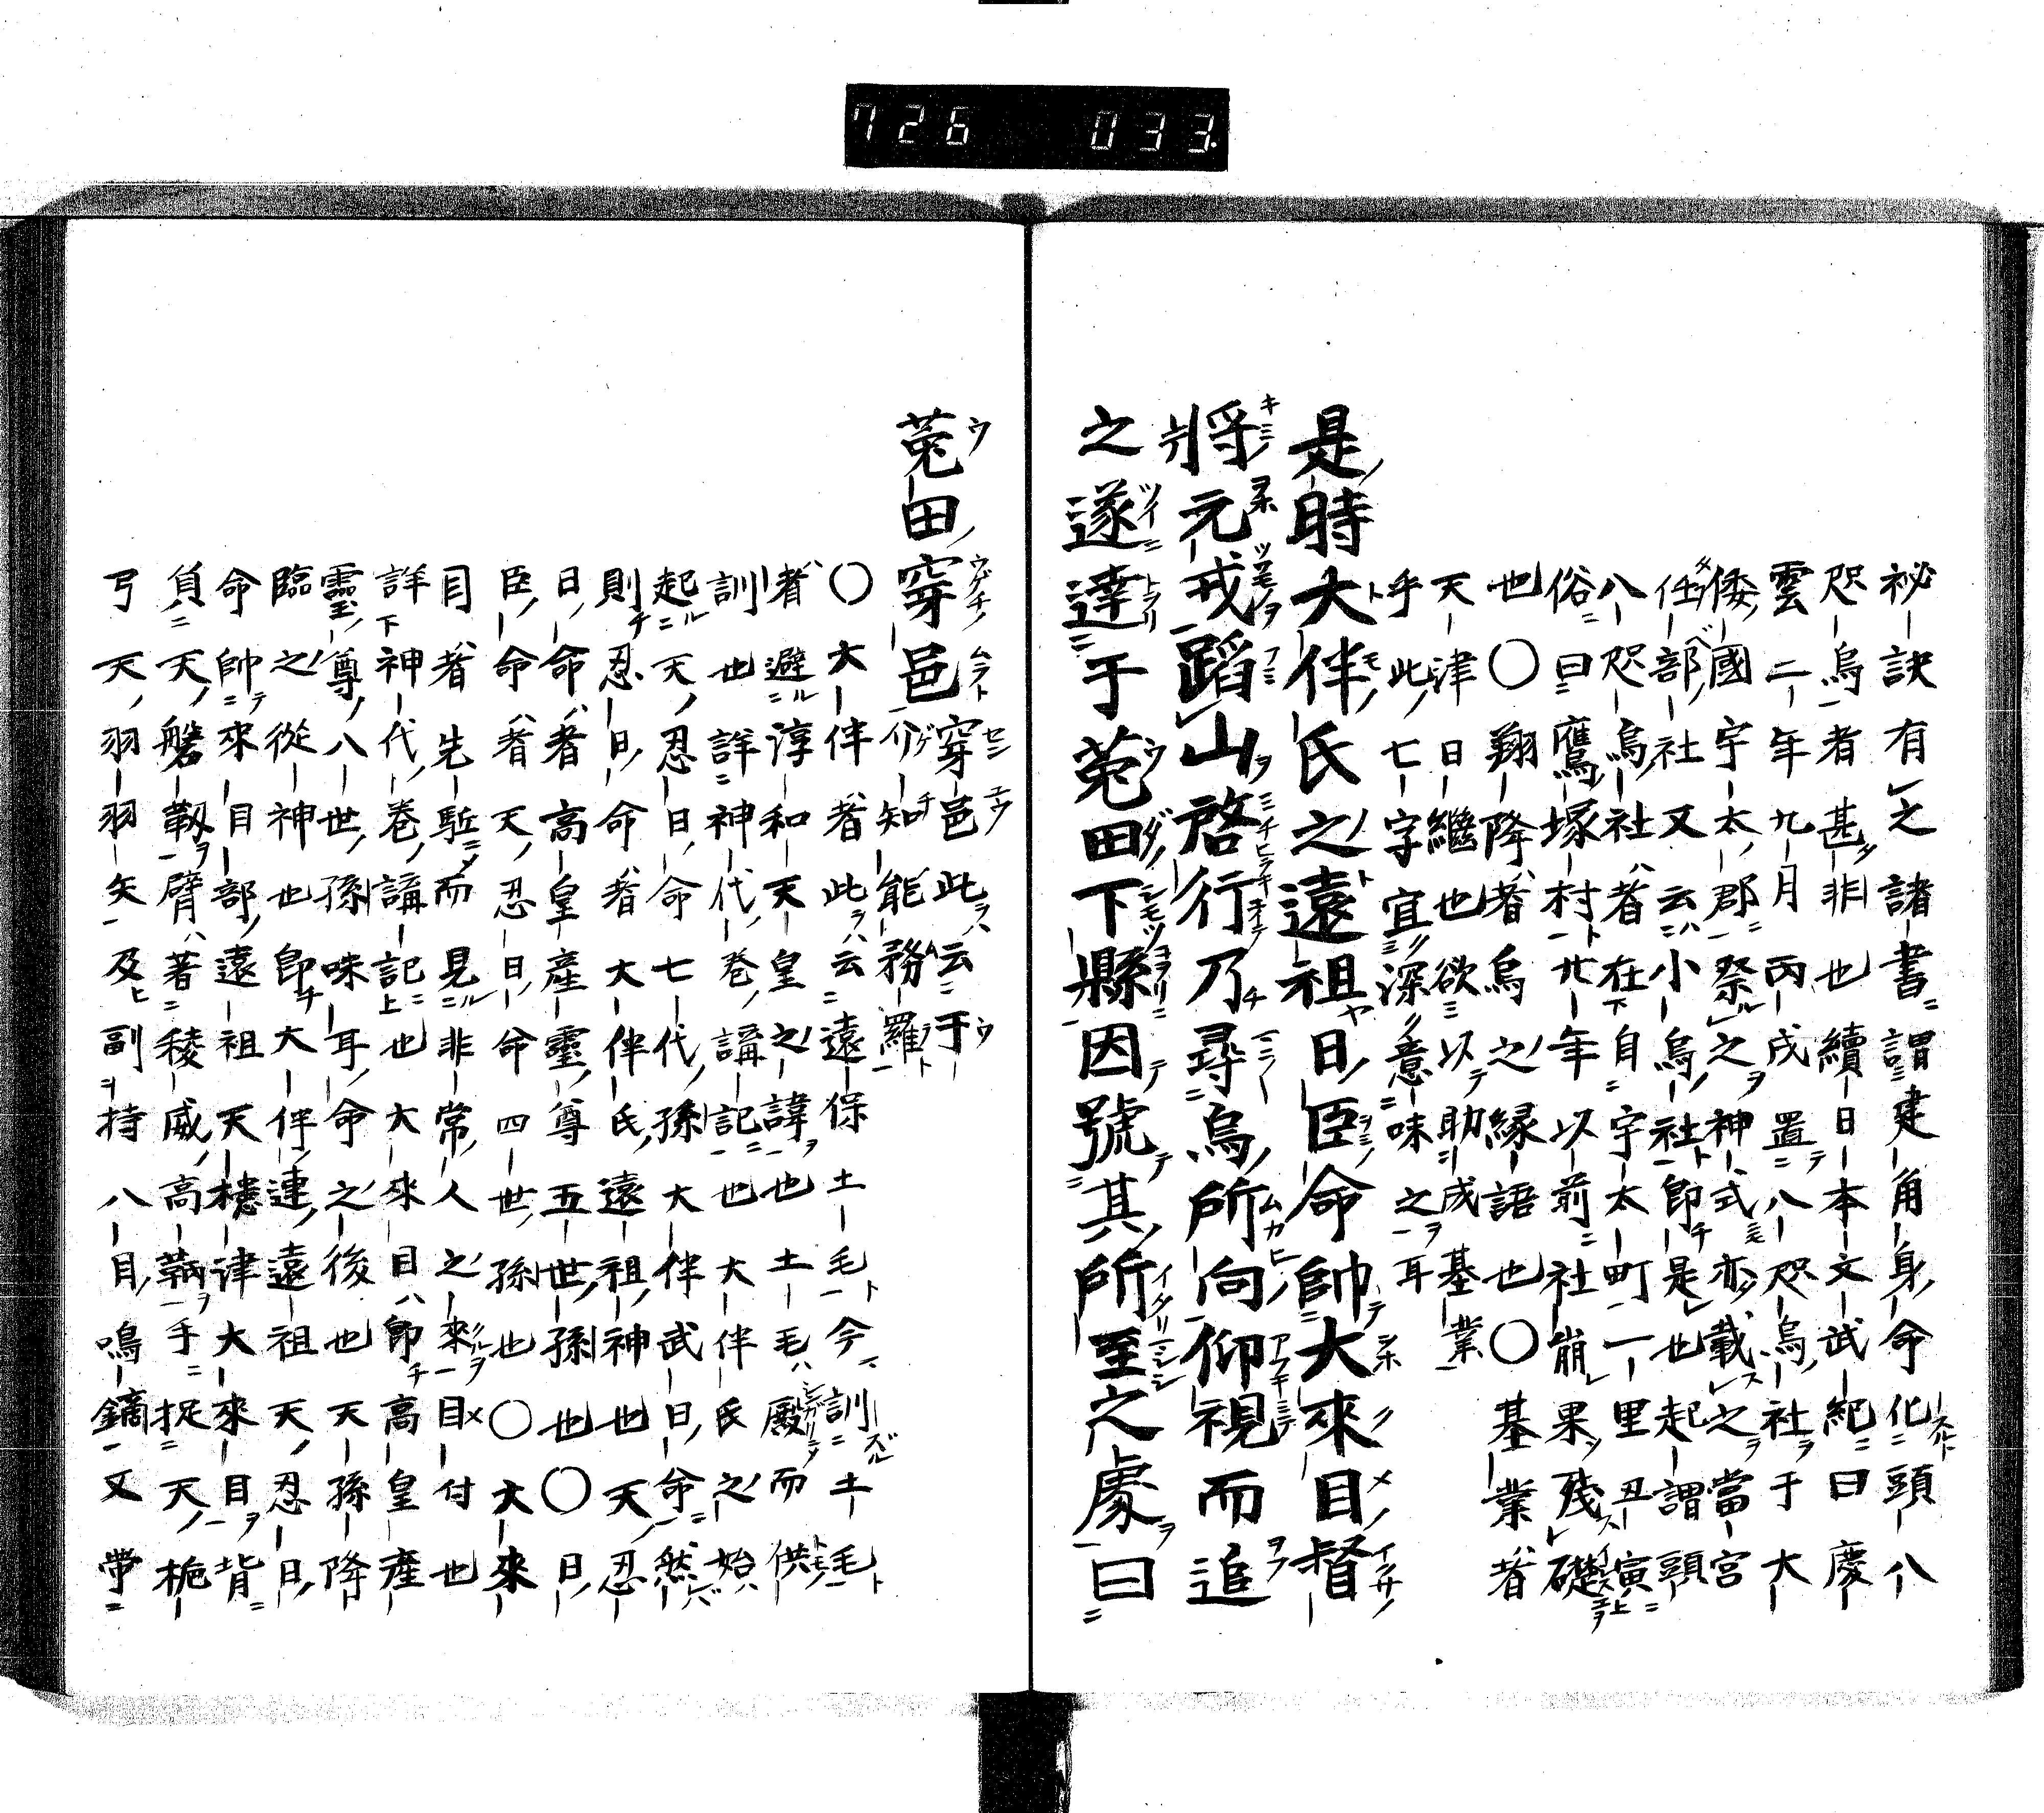 726 033
祕訣有之諸書謂建角身命化頭八
咫烏者甚非也續日本文武紀曰慶
雲二年九月丙戌置八咫烏社于大
倭國宇太郡祭之神式亦載之當宮
任部社又云小烏社即是也起謂頭
八咫烏社者在自宇太町一里丑寅
俗曰鷹塚村廿年以前社崩果殘礎
也〇翔降者烏之縁語也〇基業者
天津日繼也欲以助成基業
乎此七字宜深意味之耳
是時大伴氏之遠祖日臣命帥大來目督
將元戎蹈山啓行乃尋烏所向仰視而追
之遂達于菟田下縣因號其所至之處曰
菟田穿邑穿邑此云于
介知能務羅
〇大伴者此云遠保土毛今訓土毛
者避淳和天皇之諱也土毛殿而供
訓也詳神代卷講記也大伴氏之始
起天忍日命七代孫大伴武日命然
則忍日命者大伴氏遠祖神也天忍
日命者高皇產靈尊五世孫也〇日
臣命者天忍日命四世孫也〇大來
目者先駈而見非常人之來目付也
詳神代卷講記也大來目即高皇產
靈尊八世孫味耳命之後也天孫降
臨之從神也即大伴連遠祖天忍日
命帥來目部遠祖天槵津大來目背
負天磐靫臂著稜威高鞆手捉天梔
弓天羽羽矢及副持八目鳴鏑又帶